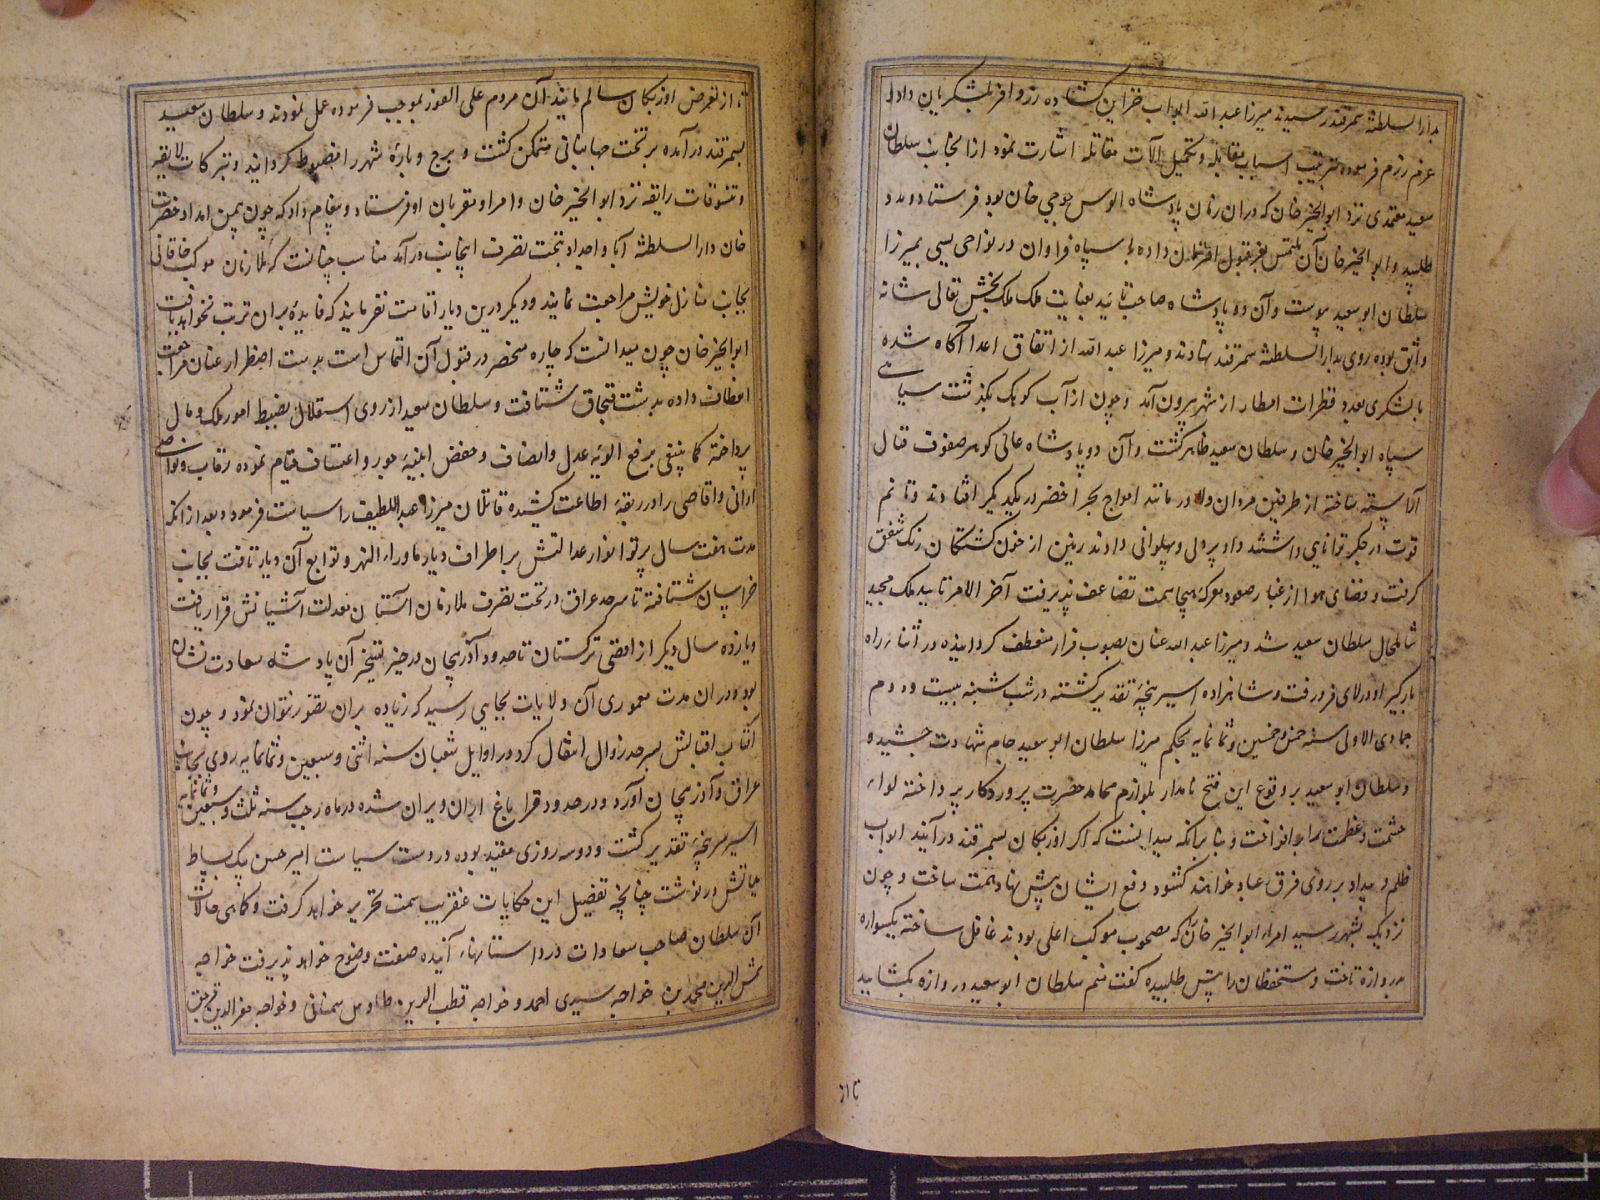 بدارالسلطنهٔ سمرقند رسیدند میرزا عبدالله ابواب خزاین کشاده زر وافر بلشکریان داد و
عزم رزم فرموده بترتیب اسباب مقابله و تکمیل آلات مقاتله اشارت نمود از انجانب سلطان
سعید معتمدی نزد ابوالخیر خان که دران زمان پادشاه الوس جوجی خان بود فرستاده مدد
طلبید و ابوالخیر خان آن ملتمس بعز قبول اقتران داده با سپاه فراوان در نواحی یسی بمیرزا
سلطان ابوسعید پیوست و آن دو پادشاه صاحب تائید بعنایت ملک ملک بخش تعالی شانه
واثق بوده روی بدارالسلطنه سمرقند نهادند و میرزا عبدالله از اتفاق اعدا آگاه شده
با لشکری بعدد قطرات امطار از شهر بیرون آمد و چون از آب کوهک بگذشت سیاهی
سپاه ابوالخیر خان و سلطان سعید ظاهر کشت و آن دو پادشاه عالی کوهر صفوف قتال
آراسته ساخته از طرفین مردان دلاور مانند امواج بحر اخضر در یکدیگر افتادند و تا نم
قوت در جکر توانایی داشتند داد پردلی و پهلوانی دادند زمین از خون کشتکان رنک شفق
کرفت و فضای هوا از غبار صعود معرکه هیجا سمت تضاعف پذیرفت آخر الامر تایید ملک مجید
شامل حال سلطان سعید شد و میرزا عبدالله عنان بصوب فرار منعطف کردانیده در اثناء راه
بارگیر او در لای فرو رفت و شاهزاده اسیر پنجهٔ تقدیر کشته در شب شنبه بیست و دوم
جمادی الاولی سنه خمس و خمسین و ثمانمایه بحکم میرزا سلطان ابوسعید جام شهادت چشید و
و سلطان ابوسعید بر وقوع این فتح نامدار بلوازم محامد حضرت پروردکار پرداخته لواء
حشمت و عظمت برافراخت و بنا برانکه میدانست که اکر اوزبکان بسمرقند درآیند ابواب
ظلم و بیداد بر روی فرق عباد خواهند کشود دفع ایشان پیش نهاد همت ساخت و چون
نزدیک بشهر رسید امراء ابوالخیر خان را که مصحوب موکب اعلی بودند غافل ساخته یکسواره
بدروازه تاخت و مستحفظان را پیش طلبیده کفت منم سلطان ابوسعید دروازه بکشایید
تا از
تا از تعرض اوزبکان سالم مانید آن مردم علی الفور بموجب فرموده عمل نمودند و سلطان سعید
بسمرقند درآمده بر تخت جهانبانی متمکن کشت و برج و بارهٔ شهر را مضبوط کردانید و تبرکات لایقه
و تنسوقات رایقه نزد ابوالخیر خان و امرا و مقربان او فرستاد و پیغام داد که چون بیمن امداد حضرت
خان دارالسلطنه آبا و اجداد بتحت تصرف اینجانب درآمد مناسب چنانست که ملازمان موکب خاقانی
بجانب منازل خویش مراجعت نمایند و دیکر درین دیار اقامت نفرمایند که فایدهٔ بران ترتب نخواهد یافت
ابوالخیر خان چون میدانست که چاره منحصر در قبول آن التماس است بدست اضطرار عنان مراجعت
انعطاف داده بدشت قبچاق شتافت و سلطان سعید از روی استقلال بضبط امور ملک و مال
پرداخته کما ینبغی برفع الویه عدل و انصاف و خفض ابنیهٔ جور و اعتساف قیام نموده رقاب و نواصی
ادانی و اقاصی را در ربقهٔ اطاعت کشیده قاتلان میرزا عبداللطیف را سیاست فرمود و بعد از انکه
مدت هفت سال پرتو انوار عدالتش بر اطراف دیار ماوراء النهر و توابع آن دیار تافت بجانب
خراسان شتافته تا سرحد عراق در تحت تصرف ملازمان آستان معدلت آشیانش قرار یافت
و یازده سال دیکر از اقصی ترکستان تا حدود آذربیجان در حیز تسخیر آن پادشاه سعادت نشان
بود و دران مدت معموری آن ولایات بجایی رسید که زیاده بران تصور نتوان نمود و چون
آفتاب اقبالش بسرحد زوال انتقال کرد در اوایل شعبان سنه اثنی و سبعین و ثمانمایه روی بجانب
عراق و آذربیجان آورد و در حدود قراباغ اران ویران شده در ماه رجب سنه ثلث و سبعین و ثمانمایه
اسیر سرپنجهٔ تقدیر کشت و دوسه روزی مقید بوده در دست سیاست امیر حسن بیک بساط
حیاتش در نوشت چنانچه تفصیل این حکایات عنقریب سمت تحریر خواهد کرفت و کاهی حالات
آن سلطان صاحب سعادات در داستانهاء آینده صفت وضوح خواهد پذیرفت خواجه
شمس الدین محمد بن خواجه سیدی احمد و خواجه قطب الدین طاوس سمنانی و خواجه معزالدین